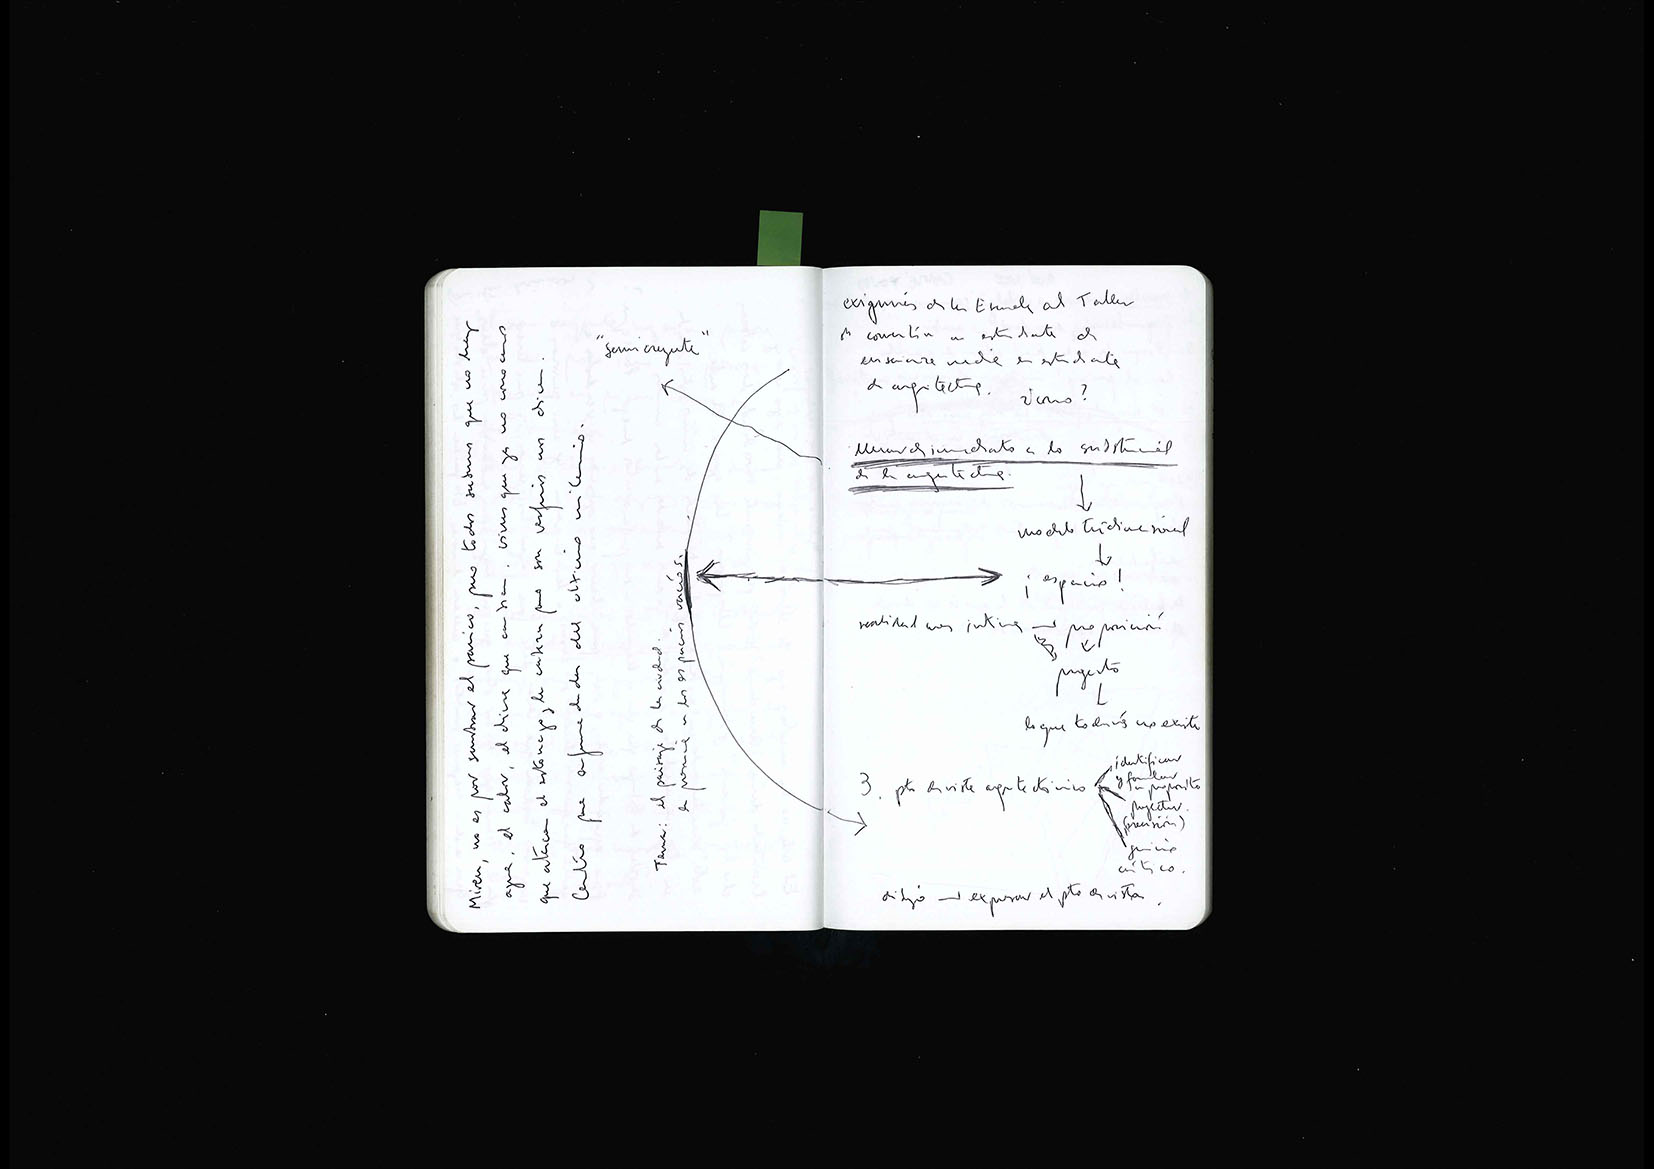 Miren, no es por sembrar el pánico, pero todos sabemos que no hay
agua, el calor, el clima que cambian, virus que ya no conocemos
que atacan el estomago, la cabeza pues son virus nos dicen.
que enfermedades del último milenio.
"semicreyente"
Tema: el paisaje de la ciudad.
la poesía en los espacios vacíos.
de la Escuela al Taller
convertir un estudiante de
enseñanza media en estudiante
de arquitectura. ¿como?
de inmediato a lo substancial
de la arquitectura.
modelo tridimensional
¡espacio!
realidad mas intima → proposición
proyecto
lo que todavía no existe
3. pto de vista arquitectónico
identificar
y formular
un proposito
proyectar.
(precisión)
juicio
crítico.
dibujo → expresar el pto de vista.